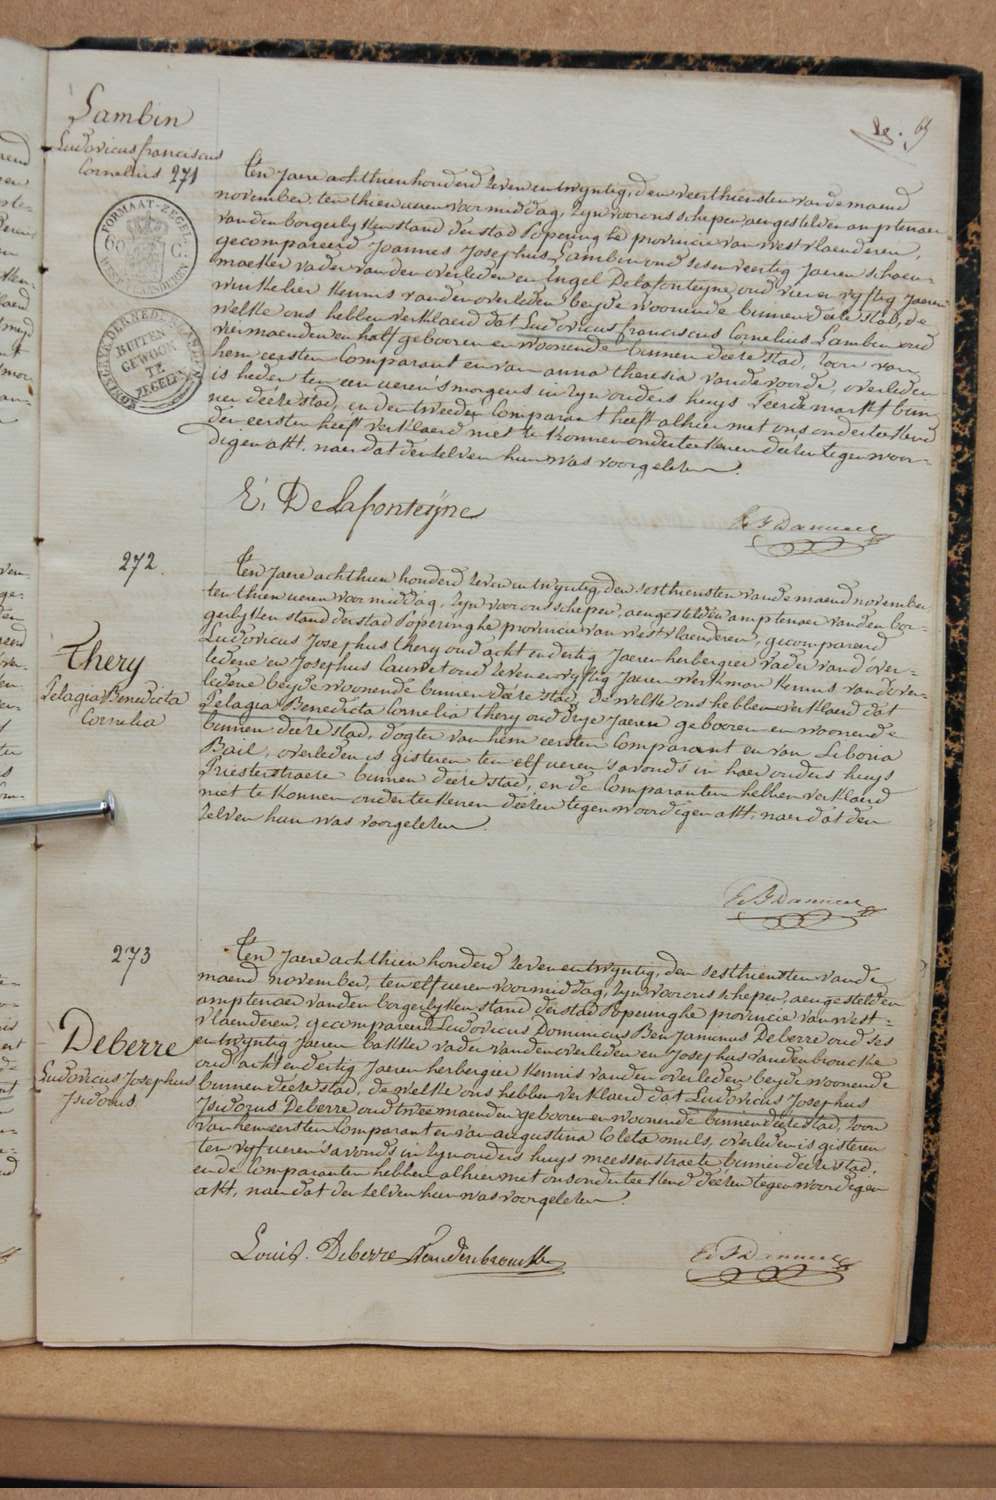 Lambin
Ludovicus franciscus
Cornelius 271
FORMAAT-ZEGEL
WEST VLAENDEREN
KONINGRYK DER NEDERLANDEN
BUITEN
GEWOON
TE
ZEGELEN
Ten Jaere achthien honderd zeven en twyntig, den veerthiensten van de maend
november, ten thien ueren voormiddag, zyn voor ons schepen aengestelden amptenaer
van den borgerlyken stand der stad Poperinghe provincie van West vlaenderen,
gecompareerd Joannes Josephus Lambin oud ses en veertig Jaeren schoen-
maeker vader van den overleden en Engel Delafonteyne oud vier en vyftig Jaeren
winkelier kennis van den overleden beyde woonende binnen deéze stad, de
welke ons hebben verklaerd dat Ludovicus franciscus Cornelius Lambin oud
vier maenden en half gebooren en woonende binnen deéze stad, zoon van
hem eersten Comparant en van anna theresia vandevoorde, overleden
is heden ten een ueren 's morgens in zyn ouders huys Peerdemarkt bin-
nen deéze stad, en den tweeden Comparant heeft alhier met ons onderteekend
den eersten heeft verklaerd niet te konnen onderteekenen deézen tegenwoor-
digen akt, naer dat den zelven hun was voorgelezen.
E. Delafonteÿne
272.
Thery
Pelagia Benedicta
Cornelia
Ten Jaere achthien honderd zeven en twyntig, den sesthiensten van de maend november
ten thien ueren voormiddag, zyn voor ons schepen, aengestelden amptenaer van den bor-
gerlyken stand der stad Poperinghe provincie van westvlaenderen, gecompareerd
Ludovicus Josephus thery oud acht en dertig Jaeren herbergier vader van d'over-
ledene en Josephus Lauwet oud zeven en vyftig Jaeren werkman kennis van d'over-
ledene beyde woonende binnen deéze stad, de welke ons hebben verklaerd dat
Pelagia Benedicta Cornelia thery oud drye Jaeren gebooren en woonende
binnen deéze stad, dogter van hem eersten Comparant en van Liboria
Bail, overleden is gisteren ten elf ueren 's avonds in haer ouders huys
Priesterstraete binnen deéze stad, en de Comparanten hebben verklaerd
niet te konnen onderteekenen deézen tegenwoordigen akt, naer dat den
zelven hun was voorgelezen.
273
Deberre
Ludovicus Josephus
Isidorus
Ten Jaere achthien honderd zeven en twyntig, den sesthiensten van de
maend november, ten elf ueren voormiddag, zyn voor ons schepen, aengestelden
amptenaer van den borgerlyken stand der stad Poperinghe provincie van West-
vlaenderen, gecompareerd Ludovicus Dominicus Benjaminus Deberre oud ses
en twyntig Jaeren bakker vader van den overleden en Josephus vandenbroucke
oud acht en dertig Jaeren herbergier kennis van den overleden beyde woonende
binnen deéze stad, de welke ons hebben verklaerd dat Ludovicus Josephus
Isidorus Deberre oud twee maenden gebooren en woonende binnen deéze stad, zoon
van hem eersten Comparant en van augustina Coleta omels, overleden is gisteren
ten vyf ueren 's avonds in zyn ouders huys meessenstraete binnen deéze stad,
en de Comparanten hebben alhier met ons onderteekend deézen tegenwoordigen
akt, naer dat den zelven hun was voorgelezen.
Louis Deberre Vandenbroucke